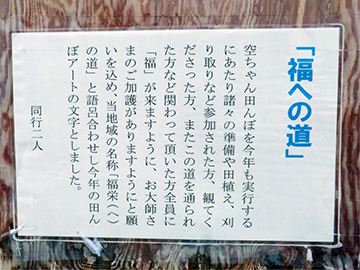 「福への道」
空ちゃん田んぼを今年も実行する
にあたり諸々の準備や田植え、刈
り取りなど参加された方、観てく
ださった方、またこの道を通られ
た方など関わって頂いた方全員に
「福」が来ますように、お大師さ
まのご加護がありますようにと願
いを込め、当地域の名称「福栄（へ）
の道」と語呂合わせし今年の田ん
ぼアートの文字としました。
同行二人